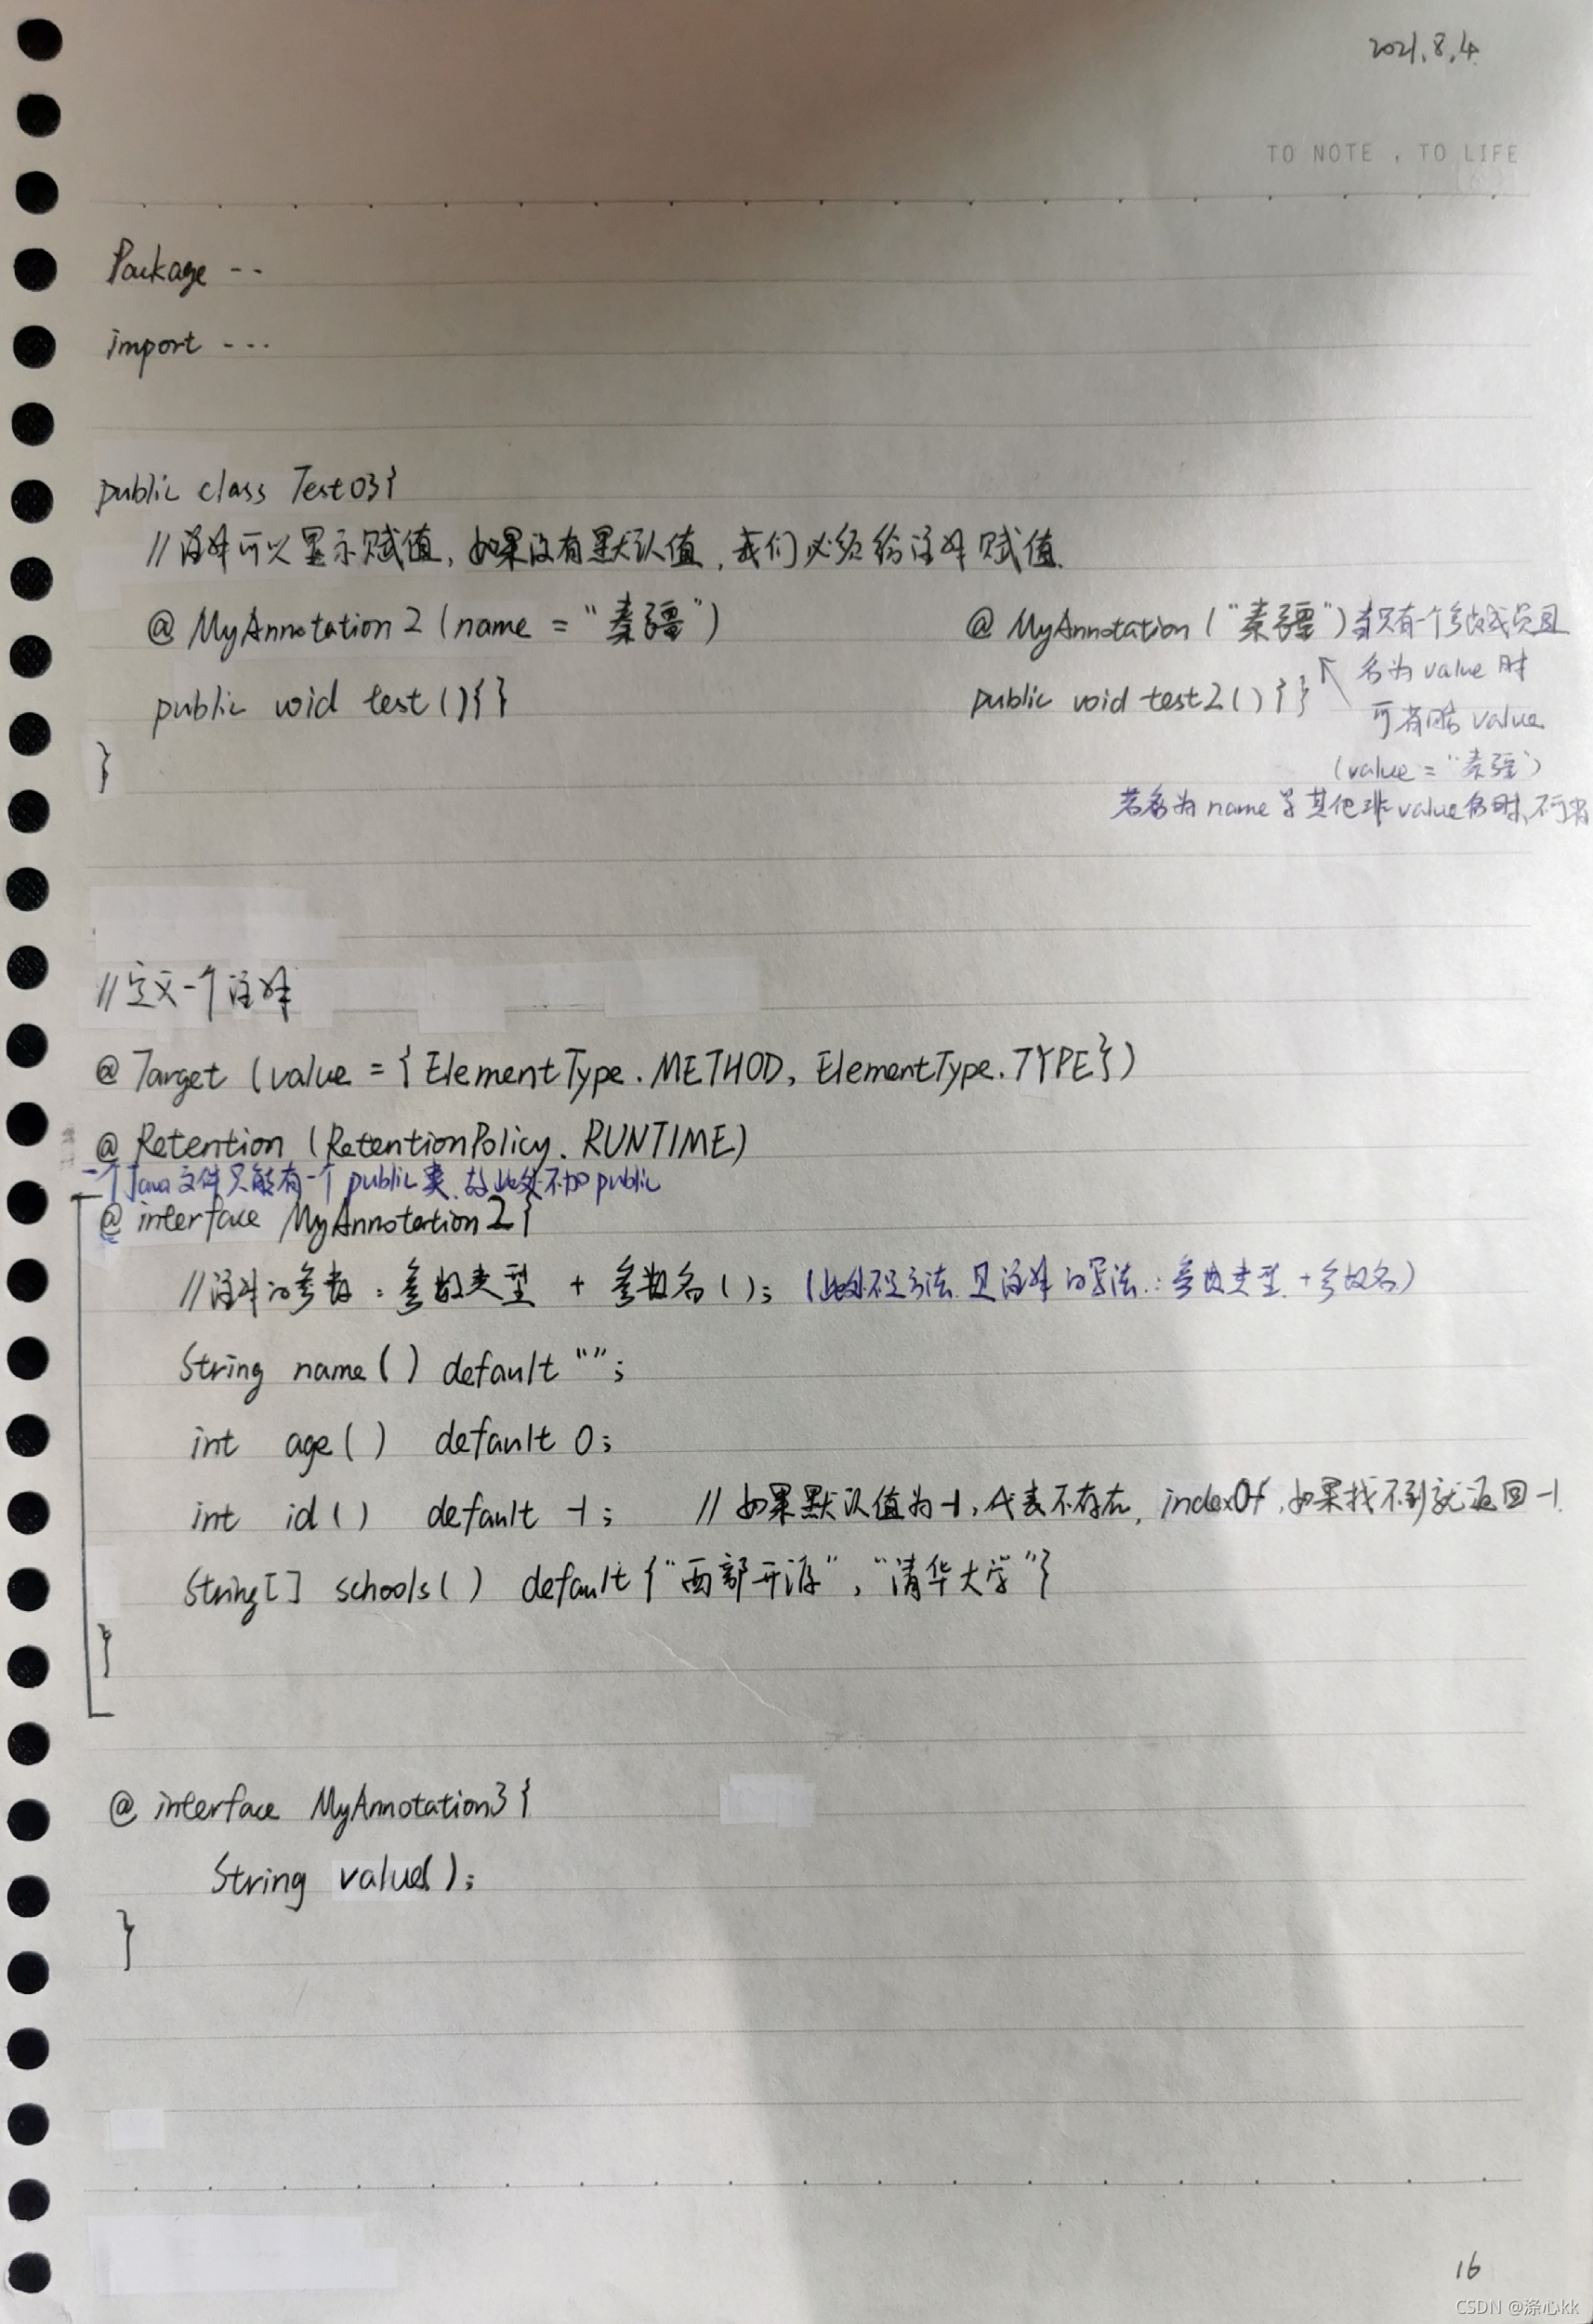 2021.8.4
TO NOTE , TO LIFE
Package --
import ---
public class Test03{
//注解可以显示赋值, 如果没有默认值, 我们必须给注解赋值.
@ MyAnnotation 2 (name = "秦疆")
public void test(){}
}
@ MyAnnotation ("秦疆") 当只有一个参数成员且
名为 value 时
public void test2() } }
可省略 value
(value = "秦疆")
若名为 name 等其他非 value 名时, 不可省
//定义一个注解
@ Target (value = { ElementType.METHOD, ElementType.TYPE})
@ Retention (RetentionPolicy. RUNTIME)
一个Java文件只能有一个 public 类, 故此处不加 public
@ interface MyAnnotation2{
//注解的参数 : 参数类型 + 参数名 (); (此处不是方法, 只注解的写法: 参数类型 + 参数名)
String name() default "";
int age() default 0;
int id() default -1; // 如果默认值为-1, 代表不存在, indexOf, 如果找不到就返回-1.
String[] schools() default {"西部开源", "清华大学"}
}
@ interface MyAnnotation3{
String value();
}
16
CSDN @涤心kk